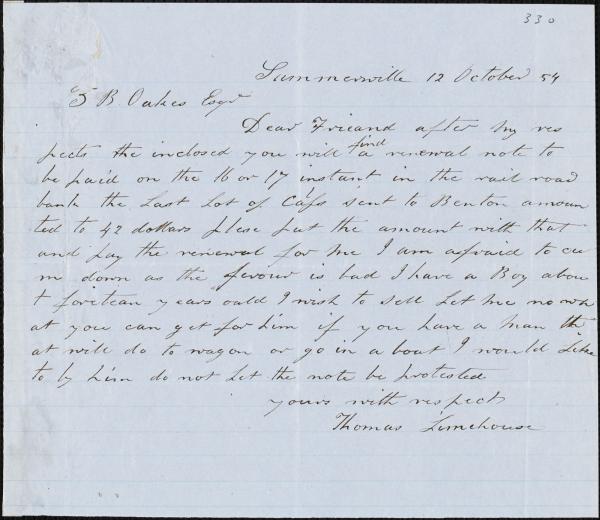 330
Summerville 12 October 54
Z B Oakes Esqr
Dear Frieand after my res
pects the inclosed you will find a renewal note to
be paid on the 16 or 17 instant in the rail road
bank the Last Lot of Cafs sent to Benton amoun
ted to 42 dollars plese put the amount with that
and pay the renewal for me I am afraid to cu
m down as the fevour is bad I have a Boy abou
t foreteen years oald I wish to sell Let me no wh
at you can get for him if you have a man th
at will do to wagon or go in a boat I would Like
to by him do not Let the note be protested
yours with respect
Thomas Limehouse